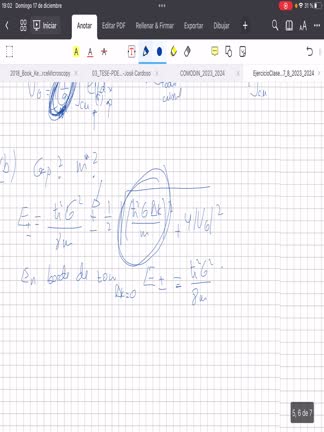 19:02 Domingo 17 de diciembre
31 %
Iniciar Anotar Editar PDF Rellenar & Firmar Exportar Dibujar
2018_Book_Ke...rceMicroscopy 03_TESE-PDE...-José Cardoso COMODIN_2023_2024 EjercicioClase...7_8_2023_2024
b) Gap? m*?
E± = ħ²G²/8m ± 1/2 √(ħ²GΔk/m)² + 4|U_G|²
En borde de zona Δk=0 E± = ħ²G²/8m
5, 6 de 7